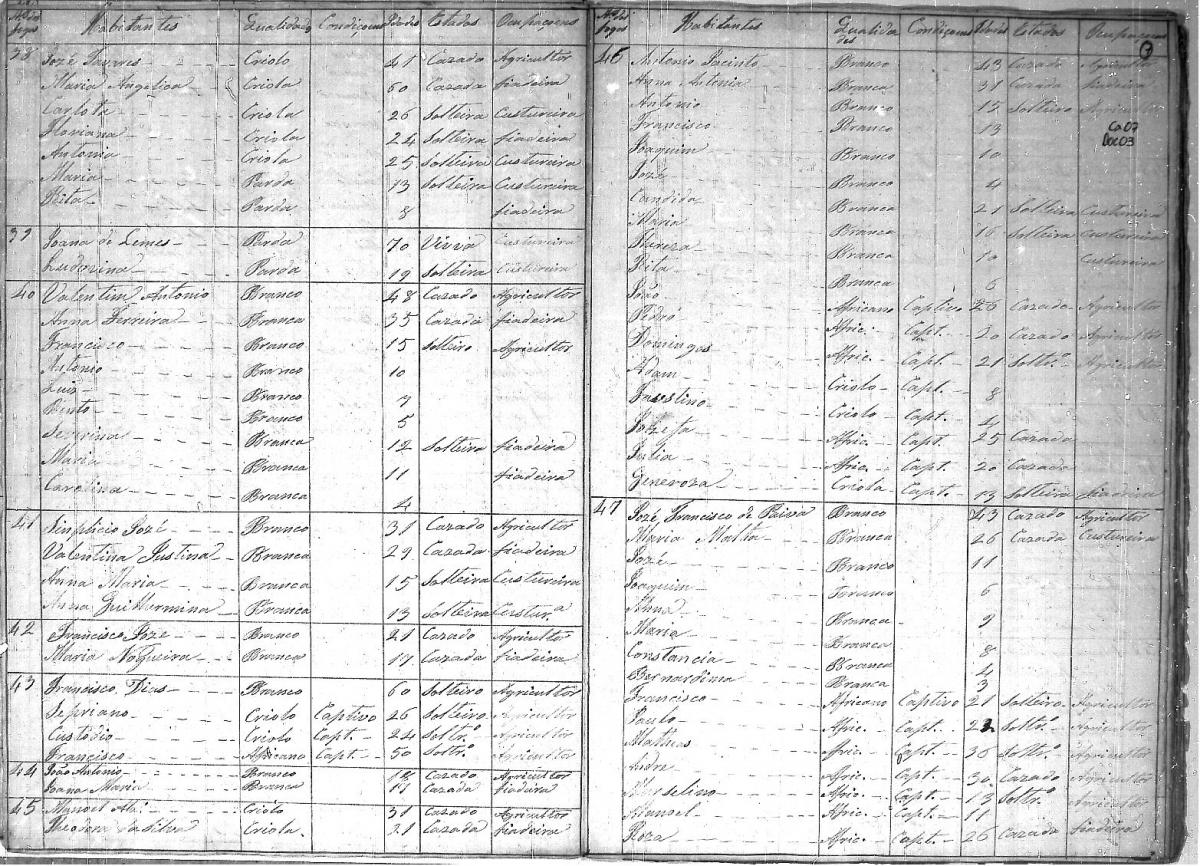 Habitantes Qualidades Condiçoens Idades Estados Ocupaçoens
38 Jozé Tavares Criolo 41 Cazado Agricultor
Maria Angelica Criola 60 Cazada fiadeira
Carlota Criola 26 Solteira Custureira
Floriana Criola 24 Solteira fiadeira
Antonia Criola 25 Solteira Custureira
Maria Parda 13 Solteira Custureira
Rita Parda 8 fiadeira
39 Joana de Lemes Parda 70 Viuva Custureira
Ludovina Parda 19 Solteira Custureira
40 Valentim Antonio Branco 48 Cazado Agricultor
Anna Ferreira Branca 35 Cazada fiadeira
Francisco Branco 15 Solteiro Agricultor
Antonio Branco 10
Luiz Branco 7
Bento Branco 5
Severina Branca 12 Solteira fiadeira
Maria Branca 11 fiadeira
Carolina Branca 4
41 Simplicio Jozé Branco 31 Cazado Agricultor
Valentina Justina Branca 29 Cazada fiadeira
Anna Maria Branca 15 Solteira Custureira
Anna Guilhermina Branca 13 Solteira Custur.a
42 Francisco Joze Branco 21 Cazado Agricultor
Maria Nogueira Branca 17 Cazada fiadeira
43 Francisco Dias Branco 60 Solteiro Agricultor
Sepriano Criolo Captivo 26 Solteiro Agricultor
Custodio Criolo Capt. 24 Soltr.o Agricultor
Francisco Africano Capt. 50 Soltr.o Agricultor
44 João Antonio Branco 18 Cazado Agricultor
Joana Maria Branca 17 Cazada fiadeira
45 Manoel Criolo 31 Cazado Agricultor
Theodora da Silva Criola 21 Cazada fiadeira
Habitantes Qualidades Condiçoens Idades Estados Ocupaçoens
46 Antonio Jacinto Branco 43 Cazado Agricultor
Anna Antonia Branca 31 Cazada fiadeira
Antonio Branco 15 Solteiro Agricultor
Francisco Branco 13
Ca07
Doc03
Joaquim Branco 10
Jozé Branco 4
Candida Branca 21 Solteira Custureira
Maria Branca 16 Solteira Custureira
Thereza Branca 10 Custureira
Rita Branca 6
João Africano Captivo 26 Cazado Agricultor
Pedro Afric. Capt. 20 Cazado Agricultor
Domingos Afric. Capt. 21 Soltr.o Agricultor
Adam Criolo Capt. 8
Faustino Criolo Capt. 4
Jozefa Afric. Capt. 25 Cazada
Julia Afric. Capt. 20 Cazada
Generoza Criola Capt. 13 Solteira fiadeira
47 Jozé Francisco de Paiva Branco 43 Cazado Agricultor
Maria Matha Branca 26 Cazada Custureira
Jozé Branco 11
Joaquim Branco 6
Anna Branca 9
Maria Branca 8
Constancia Branca 4
Bernardina Branca 3
Francisco Africano Captivo 21 Solteiro Agricultor
Paulo Afric. Capt. Soltr.o Agricultor
Matheus Afric. Capt. 36 Soltr.o Agricultor
Andre Afric. Capt. 30 Cazado Agricultor
Afric. Capt. 13 Soltr.o Agricultor
Manoel Afric. Capt. 11
Roza Afric. Capt. 26 Cazada fiadeira